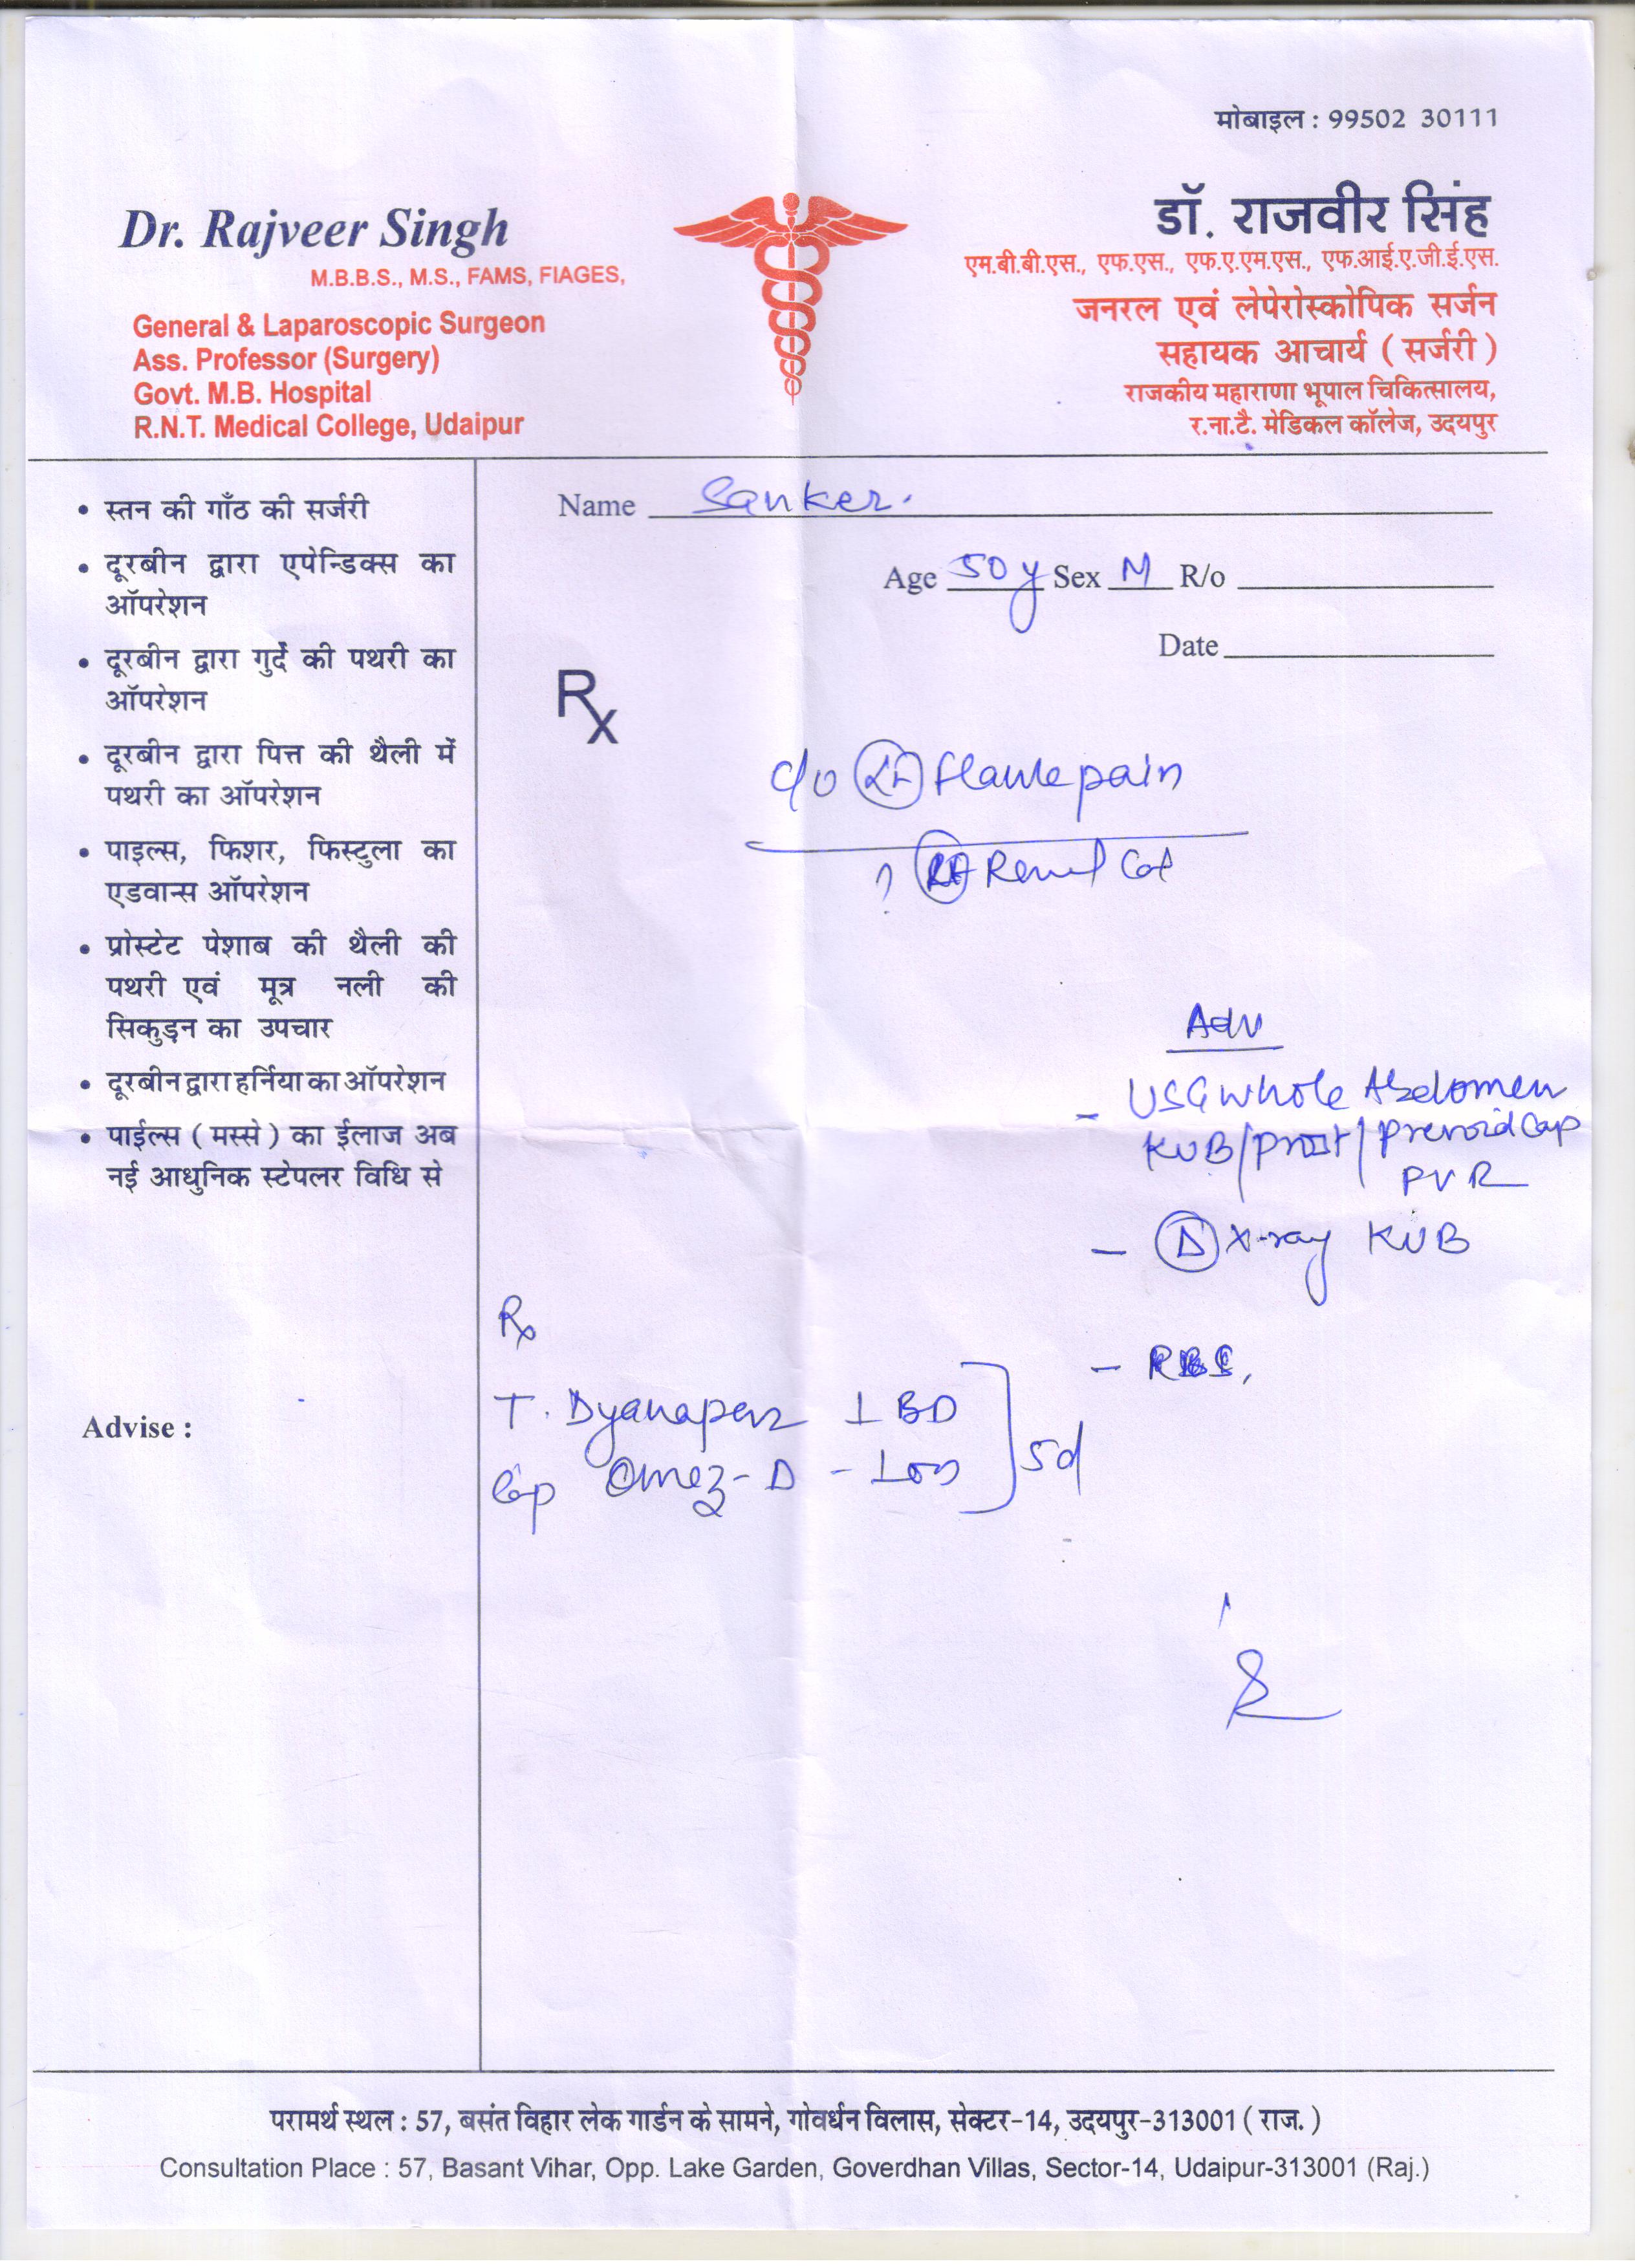 मोबाइल : 99502 30111
Dr. Rajveer Singh
M.B.B.S., M.S., FAMS, FIAGES,
General & Laparoscopic Surgeon
Ass. Professor (Surgery)
Govt. M.B. Hospital
R.N.T. Medical College, Udaipur
डॉ. राजवीर सिंह
एम.बी.बी.एस., एफ.एस., एफ.ए.एम.एस., एफ.आई.ए.जी.ई.एस.
जनरल एवं लेपेरोस्कोपिक सर्जन
सहायक आचार्य ( सर्जरी )
राजकीय महाराणा भूपाल चिकित्सालय,
र.ना.टै. मेडिकल कॉलेज, उदयपुर
• स्तन की गाँठ की सर्जरी
• दूरबीन द्वारा एपेन्डिक्स का
ऑपरेशन
• दूरबीन द्वारा गुर्दे की पथरी का
ऑपरेशन
• दूरबीन द्वारा पित्त की थैली में
पथरी का ऑपरेशन
• पाइल्स, फिशर, फिस्टुला का
एडवान्स ऑपरेशन
• प्रोस्टेट पेशाब की थैली की
पथरी एवं मूत्र नली की
सिकुड़न का उपचार
• दूरबीन द्वारा हर्निया का ऑपरेशन
• पाईल्स ( मस्से ) का ईलाज अब
नई आधुनिक स्टेपलर विधि से
Advise :
Name Sanker.
Age 50 y Sex M R/o
Date
Rx
c/o Lt flank pain
? Renal
Adv
- USG whole Abdomen
KUB/prost/prevoid Cap
PVR
- D X-ray KUB
- RBS,
Rx
T. Dyanaper 1 BD
Cap Omez-D - 1 OD
5d
परामर्थ स्थल : 57, बसंत विहार लेक गार्डन के सामने, गोवर्धन विलास, सेक्टर-14, उदयपुर-313001 ( राज. )
Consultation Place : 57, Basant Vihar, Opp. Lake Garden, Goverdhan Villas, Sector-14, Udaipur-313001 (Raj.)